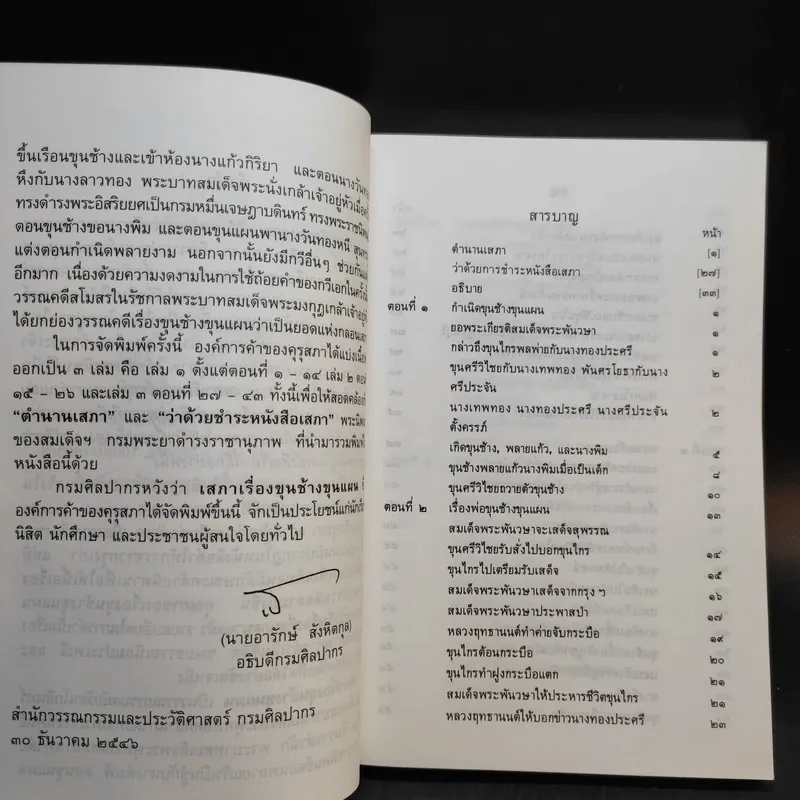 ขึ้นเรือนขุนช้างและเข้าห้องนางแก้วกิริยา และตอนนางวันทอง
หึงกับนางลาวทอง พระบาทสมเด็จพระนั่งเกล้าเจ้าอยู่หัวเมื่อ
ทรงดำรงพระอิสริยยศเป็นกรมหมื่นเจษฎาบดินทร์ ทรงพระราชนิพนธ์
ตอนขุนช้างขอนางพิม และตอนขุนแผนพานางวันทองหนี สุนทร
แต่งตอนกำเนิดพลายงาม นอกจากนั้นยังมีกวีอื่นๆ ช่วยกัน
อีกมาก เนื่องด้วยความงดงามในการใช้ถ้อยคำของกวีเอกในครั้ง
วรรณคดีสโมสรในรัชกาลพระบาทสมเด็จพระมงกุฎเกล้าเจ้าอยู่หัว
ได้ยกย่องวรรณคดีเรื่องขุนช้างขุนแผนว่าเป็นยอดแห่งกลอนเสภา
ในการจัดพิมพ์ครั้งนี้ องค์การค้าของคุรุสภาได้แบ่ง
ออกเป็น ๓ เล่ม คือ เล่ม ๑ ตั้งแต่ตอนที่ ๑ - ๑๔ เล่ม ๒ ตอน
๑๕ - ๒๖ และเล่ม ๓ ตอนที่ ๒๗ - ๔๓ ทั้งนี้เพื่อให้สอดคล้อง
“ตำนานเสภา” และ “ว่าด้วยชำระหนังสือเสภา” พระนิพนธ์
ของสมเด็จฯ กรมพระยาดำรงราชานุภาพ ที่นำมารวมพิมพ์
หนังสือนี้ด้วย
กรมศิลปากรหวังว่า เสภาเรื่องขุนช้างขุนแผน
องค์การค้าของคุรุสภาได้จัดพิมพ์ขึ้นนี้ จักเป็นประโยชน์แก่
นิสิต นักศึกษา และประชาชนผู้สนใจโดยทั่วไป
(นายอารักษ์ สังหิตกุล)
อธิบดีกรมศิลปากร
สำนักวรรณกรรมและประวัติศาสตร์ กรมศิลปากร
๓๐ ธันวาคม ๒๕๔๖
สารบาญ
หน้า
ตำนานเสภา [๑]
ว่าด้วยการชำระหนังสือเสภา [๒๗]
อธิบาย [๓๓]
ตอนที่ ๑ กำเนิดขุนช้างขุนแผน ๑
ยอพระเกียรติสมเด็จพระพันวษา ๑
กล่าวถึงขุนไกรพลพ่ายกับนางทองประศรี ๑
ขุนศรีวิไชยกับนางเทพทอง พันศรโยธากับนาง
ศรีประจัน ๒
นางเทพทอง นางทองประศรี นางศรีประจัน ๒
ตั้งครรภ์
เกิดขุนช้าง, พลายแก้ว, และนางพิม ๕
ขุนช้างพลายแก้วนางพิมเมื่อเป็นเด็ก ๘
ขุนศรีวิไชยถวายตัวขุนช้าง ๑๐
ตอนที่ ๒ เรื่องพ่อขุนช้างขุนแผน ๑๓
สมเด็จพระพันวษาจะเสด็จสุพรรณ
ขุนศรีวิไชยรับสั่งไปบอกขุนไกร ๑๔
ขุนไกรไปเตรียมรับเสด็จ ๑๕
สมเด็จพระพันวษาเสด็จจากกรุง ฯ ๑๖
สมเด็จพระพันวษาประพาสป่า ๑๗
หลวงฤทธานนต์ทำค่ายจับกระบือ ๑๙
ขุนไกรต้อนกระบือ ๒๐
ขุนไกรทำฝูงกระบือแตก ๒๑
สมเด็จพระพันวษาให้ประหารชีวิตขุนไกร ๒๑
หลวงฤทธานนต์ให้บอกข่าวนางทองประศรี ๒๓